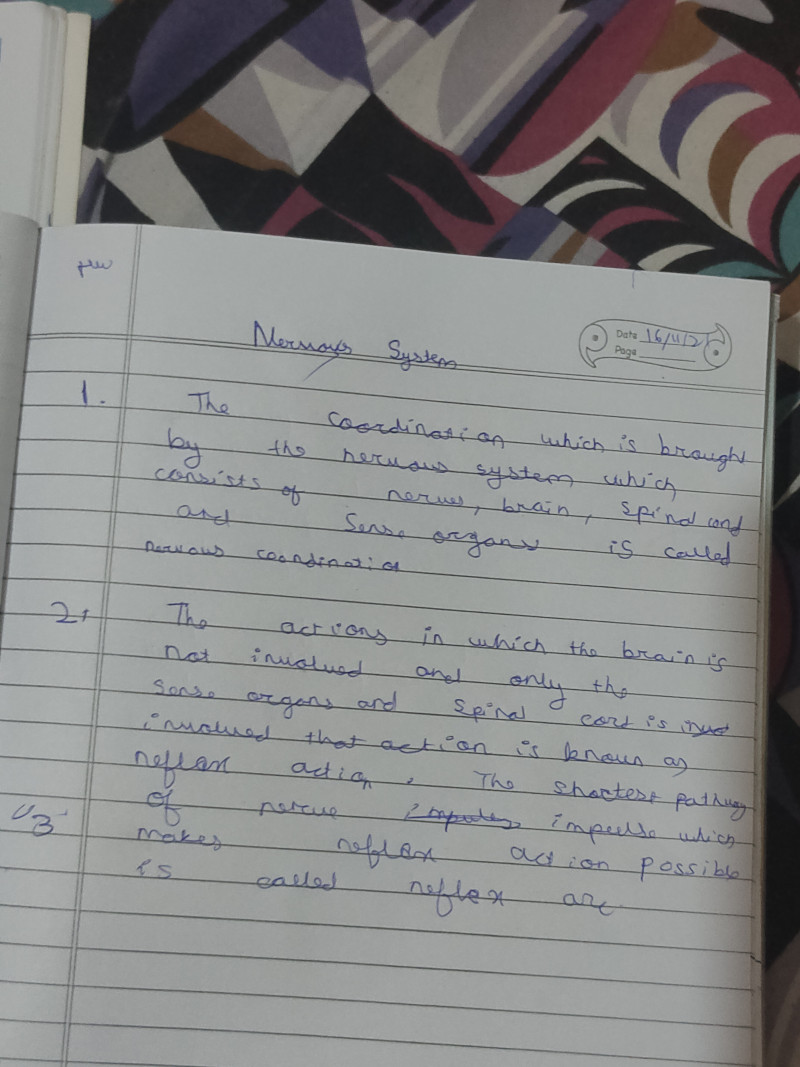 HW
Nervous System
Date 16/11/2
Page
1. The coordination which is brought
by the nervous system which
consists of nerves, brain, spinal cord
and sense organs is called
nervous coordination
2. The actions in which the brain is
not involved and only the
sense organs and spinal cord is
involved that action is known as
reflex action. The shortest pathway
3 of nerve impulse which
makes reflex action possible
is called reflex arc